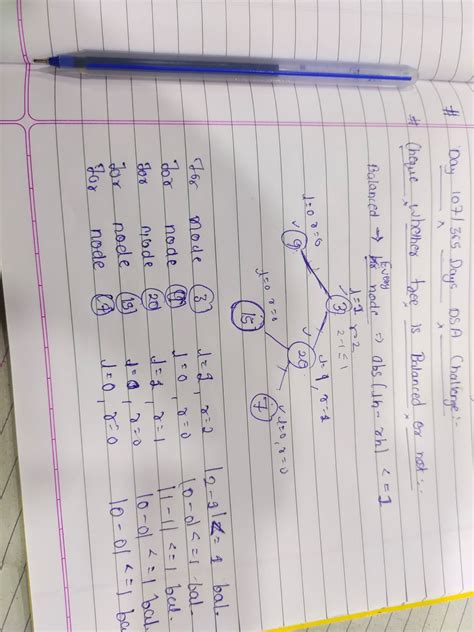 # Day 107/365 Days DSA Challenge :-
# Cheque whether tree is Balanced or not :-
Balanced → Every node => abs(lh - rh) <= 1
l=1 r=2
2-1 ≤ 1
3
l=0 r=0
9
20
l=1, r=1
l=0 r=0
15
7
l=0, r=0
for node 3 l=1, r=2 |2-1| <= 1 bal.
for node 9 l=0, r=0 |0-0| <= 1 bal.
for node 20 l=1, r=1 |1-1| <= 1 bal.
for node 15 l=0, r=0 |0-0| <= 1 bal.
for node 7 l=0, r=0 |0-0| <= 1 bal